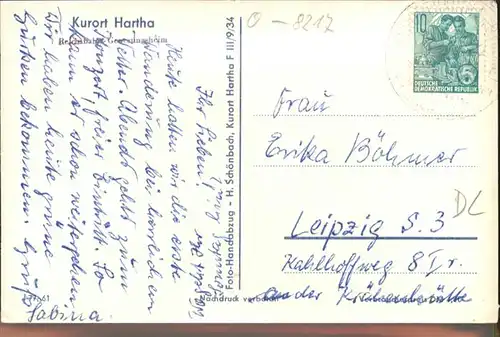 Kurort Hartha
Reichsbahn-Genesungsheim
Ihr Lieben!
Heute hatten wir die erste
Wanderung bei herrlichem
Wetter. Abends geht's zum
Konzert, freier Eintritt. So
kann es schon weitergehen
Wir haben heute grüne
Gurken bekommen. Gruß
Sabina.
Foto-Handabzug - H. Schönbach, Kurort Hartha F III/9/34
Nachdruck verboten
O - 8217
10
DEUTSCHE
DEMOKRATISCHE REPUBLIK
Frau
Erika Böhmer
DL
Leipzig S. 3
Kahlhoffweg 8 I r.
an der